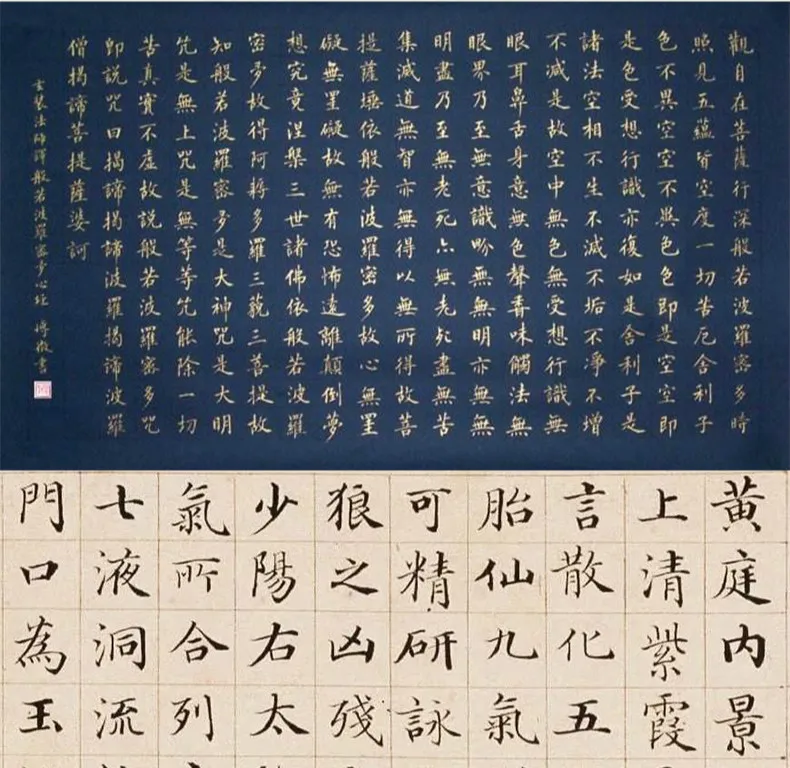 觀自在菩薩行深般若波羅密多時
照見五蘊皆空度一切苦厄舍利子
色不異空空不異色色即是空空即
是色受想行識亦復如是舍利子是
諸法空相不生不滅不垢不淨不增
不減是故空中無色無受想行識無
眼耳鼻舌身意無色聲香味觸法無
眼界乃至無意識界無無明亦無無
明盡乃至無老死亦無老死盡無苦
集滅道無智亦無得以無所得故菩
提薩埵依般若波羅密多故心無罣
礙無罣礙故無有恐怖遠離顛倒夢
想究竟涅槃三世諸佛依般若波羅
密多故得阿耨多羅三藐三菩提故
知般若波羅密多是大神咒是大明
咒是無上咒是無等等咒能除一切
苦真實不虛故說般若波羅密多咒
即說咒曰揭諦揭諦波羅揭諦波羅
僧揭諦菩提薩婆訶
玄奘法師譯般若波羅密多心經 書
黃庭內景
上清紫霞
言散化五
胎仙九氣
可精研詠
狼之凶殘
少陽右太
氣所合列
七液洞流
門口為玉